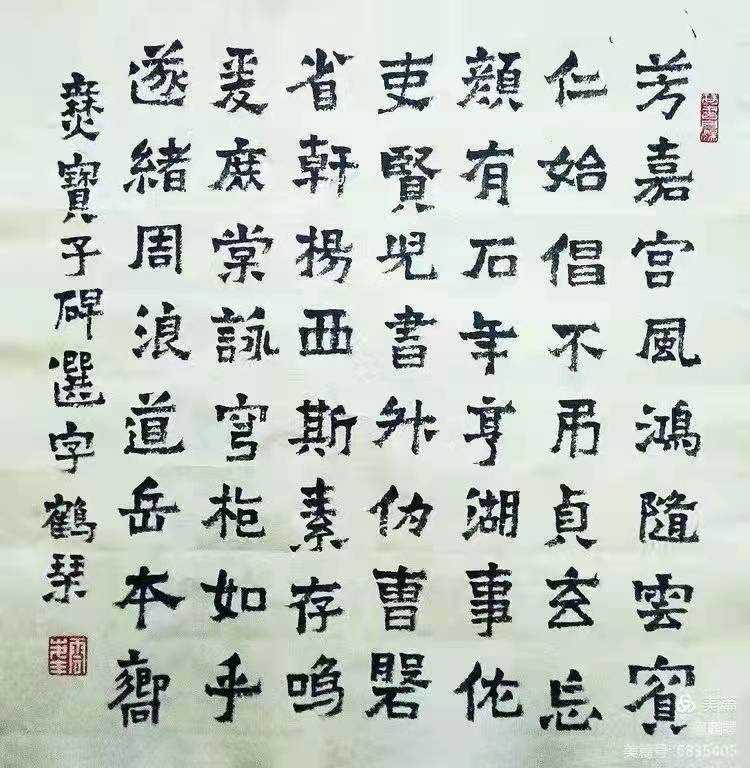 芳嘉宮風鴻隨雲賓
仁始倡不吊貞玄忘
顏有石年亨湖事佐
吏賢皃書外伪曹磬
省軒揚西斯素存嗚
爰庶棠詠穹如乎
遂緒周浪道岳本嚮
爨寶子碑選字鶴琹
美篇
美篇号: 6335405